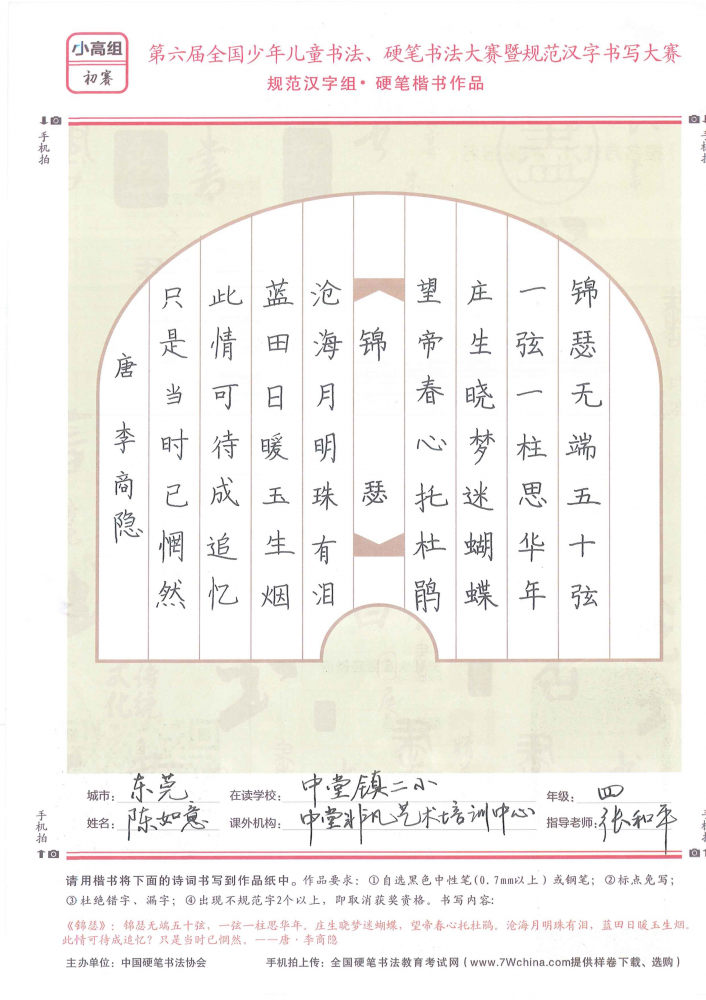 小高组
初赛
第六届全国少年儿童书法、硬笔书法大赛暨规范汉字书写大赛
规范汉字组·硬笔楷书作品
手机拍
手机拍
锦瑟无端五十弦
一弦一柱思华年
庄生晓梦迷蝴蝶
望帝春心托杜鹃
锦瑟
沧海月明珠有泪
蓝田日暖玉生烟
此情可待成追忆
只是当时已惘然
唐 李商隐
城市：东莞 在读学校：中堂镇二小 年级：四
姓名：陈如意 课外机构：中堂非凡艺术培训中心 指导老师：张和平
手机拍
手机拍
请用楷书将下面的诗词书写到作品纸中。作品要求：①自选黑色中性笔(0.7mm以上)或钢笔；②标点免写；
③杜绝错字、漏字；④出现不规范字2个以上，即取消获奖资格。书写内容：
《锦瑟》：锦瑟无端五十弦，一弦一柱思华年。庄生晓梦迷蝴蝶，望帝春心托杜鹃。沧海月明珠有泪，蓝田日暖玉生烟。
此情可待成追忆？只是当时已惘然。——唐·李商隐
主办单位：中国硬笔书法协会 手机拍上传：全国硬笔书法教育考试网（www.7Wchina.com提供样卷下载、选购）